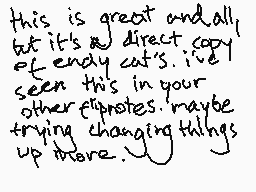 this is great and all,
but it's a direct copy
of endy cat's. i've
seen this in your
other flipnotes. maybe
trying changing things
up more.